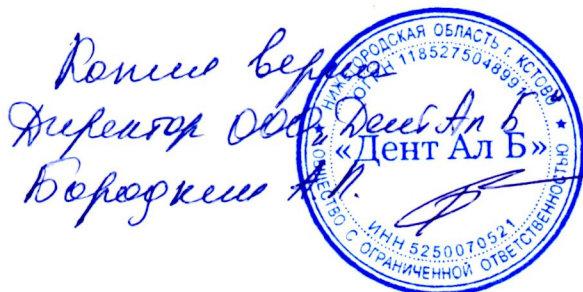 Копия верна
Директор ООО "Дент Ал Б"
Бородкин А.П.
НИЖЕГОРОДСКАЯ ОБЛАСТЬ г. КСТОВО
ОГРН 1185275048997
«Дент Ал Б»
ИНН 5250070521
ОБЩЕСТВО С ОГРАНИЧЕННОЙ ОТВЕТСТВЕННОСТЬЮ